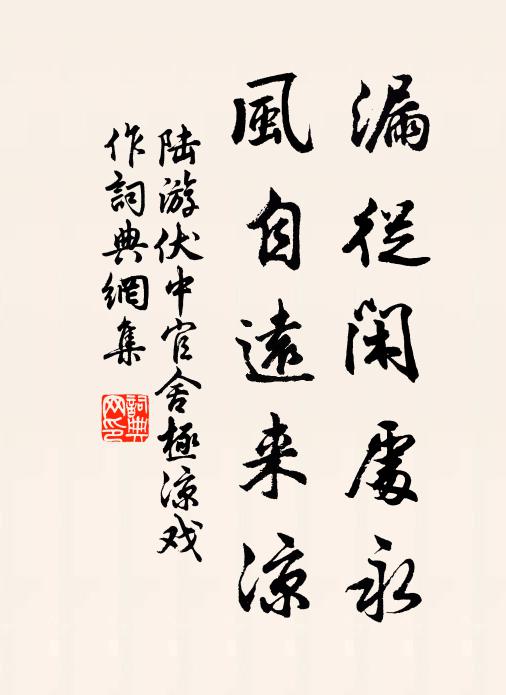 漏從閑處永
風自遠来涼
陆游伏中官舍極凉戏
作詞典網集
詞典网印